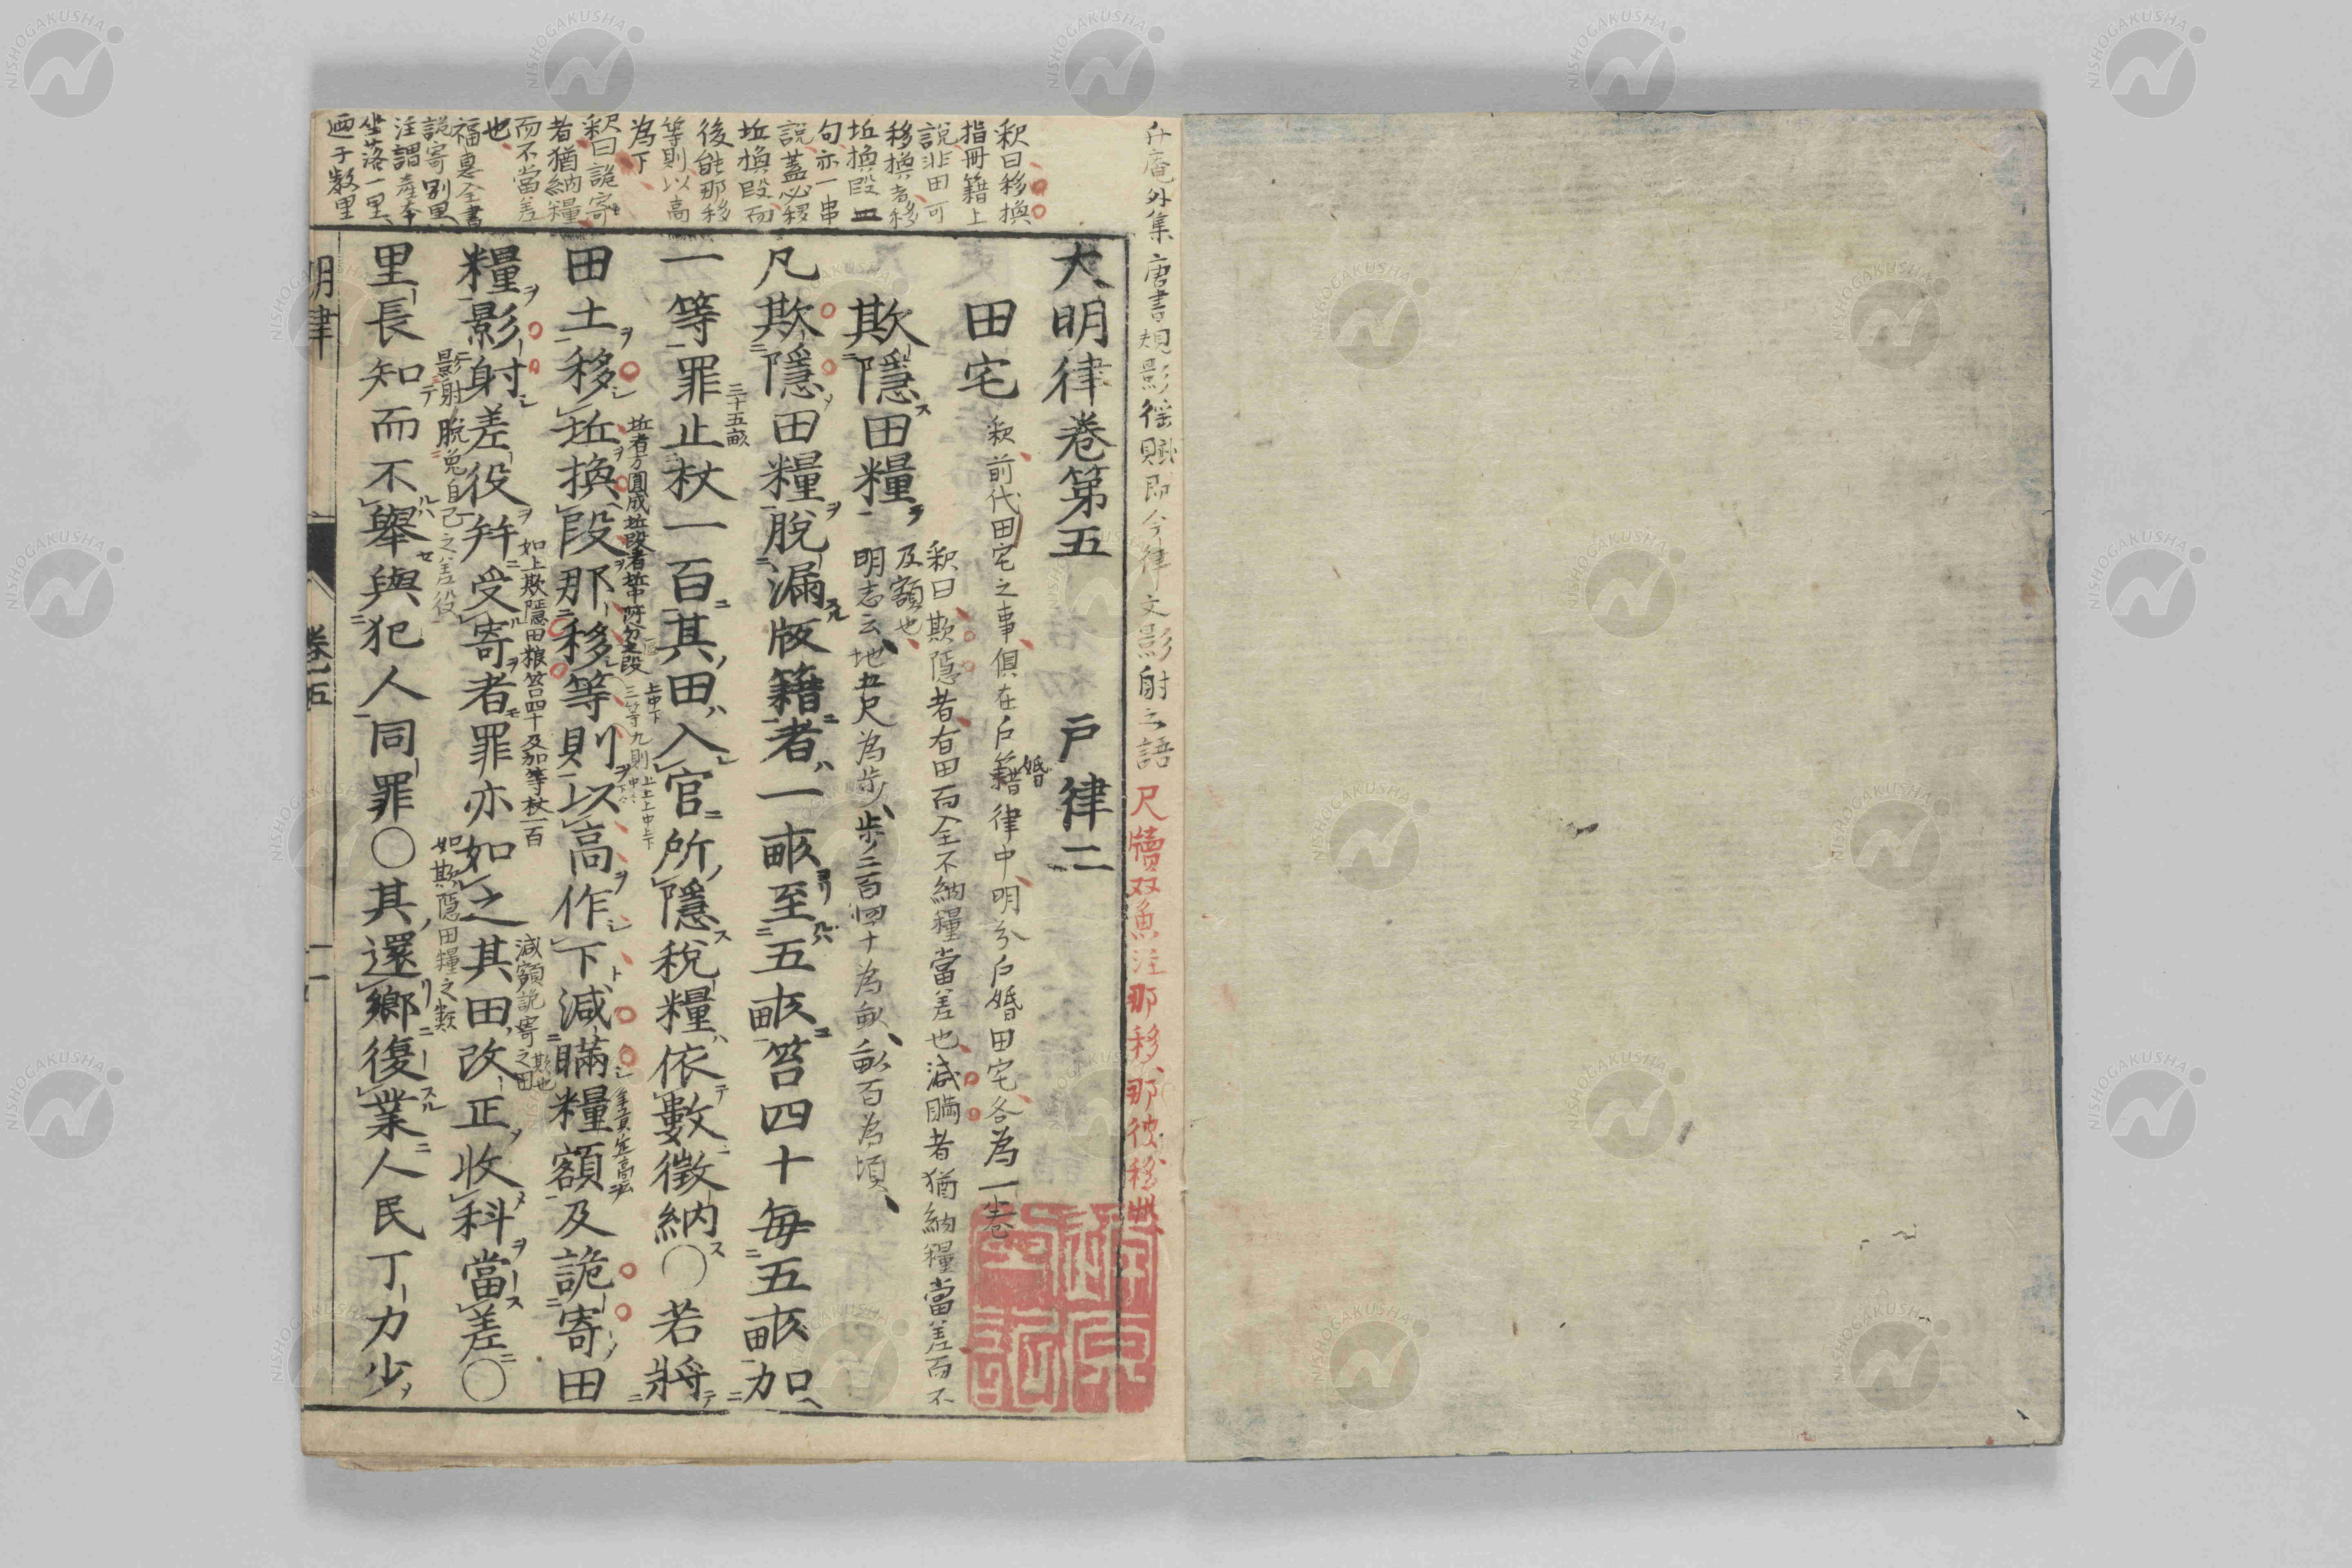 升庵外集唐書規影徭賦即今律文影射之語尺牘双魚注那移那彼移此
釈曰移換
指冊籍上
說非田可
移換者移
坵換段四
句亦一串
說蓋必移
坵換段而
後能那移
等則以高
為下
釈曰詭寄
者猶納糧
而不當差
也
福惠全書
詭寄別里
注謂產本
坐落一里
迺于数里
大明律卷第五 戸律二
田宅
釈前代田宅之事俱在戶籍律中明分戶婚田宅各為一卷
婚
欺隱田糧
釈曰欺隱者有田而全不納糧當差也減瞞者猶納糧當差而不
及額也
明志云地五尺為步步二百四十為畝畝百為頃
凡欺隱田糧脫漏版籍者一畝至五畝笞四十每五畝加
一等罪止杖一百其田入官所隱稅糧依數徵納〇若將
三十五畝
田土移坵換段那移等則以高作下減瞞糧額及詭寄田
坵者方圓成坵段者坵中所分之段
上中下
三等九則
糧影射差役幷受寄者罪亦如之其田改正收科當差〇
如上欺隱田粮笞四十及加等杖一百
減額詭寄之田
里長知而不舉與犯人同罪〇其還鄉復業人民丁力少
影射脫免自己之差役
如欺隱田糧之類
明律 卷五 一